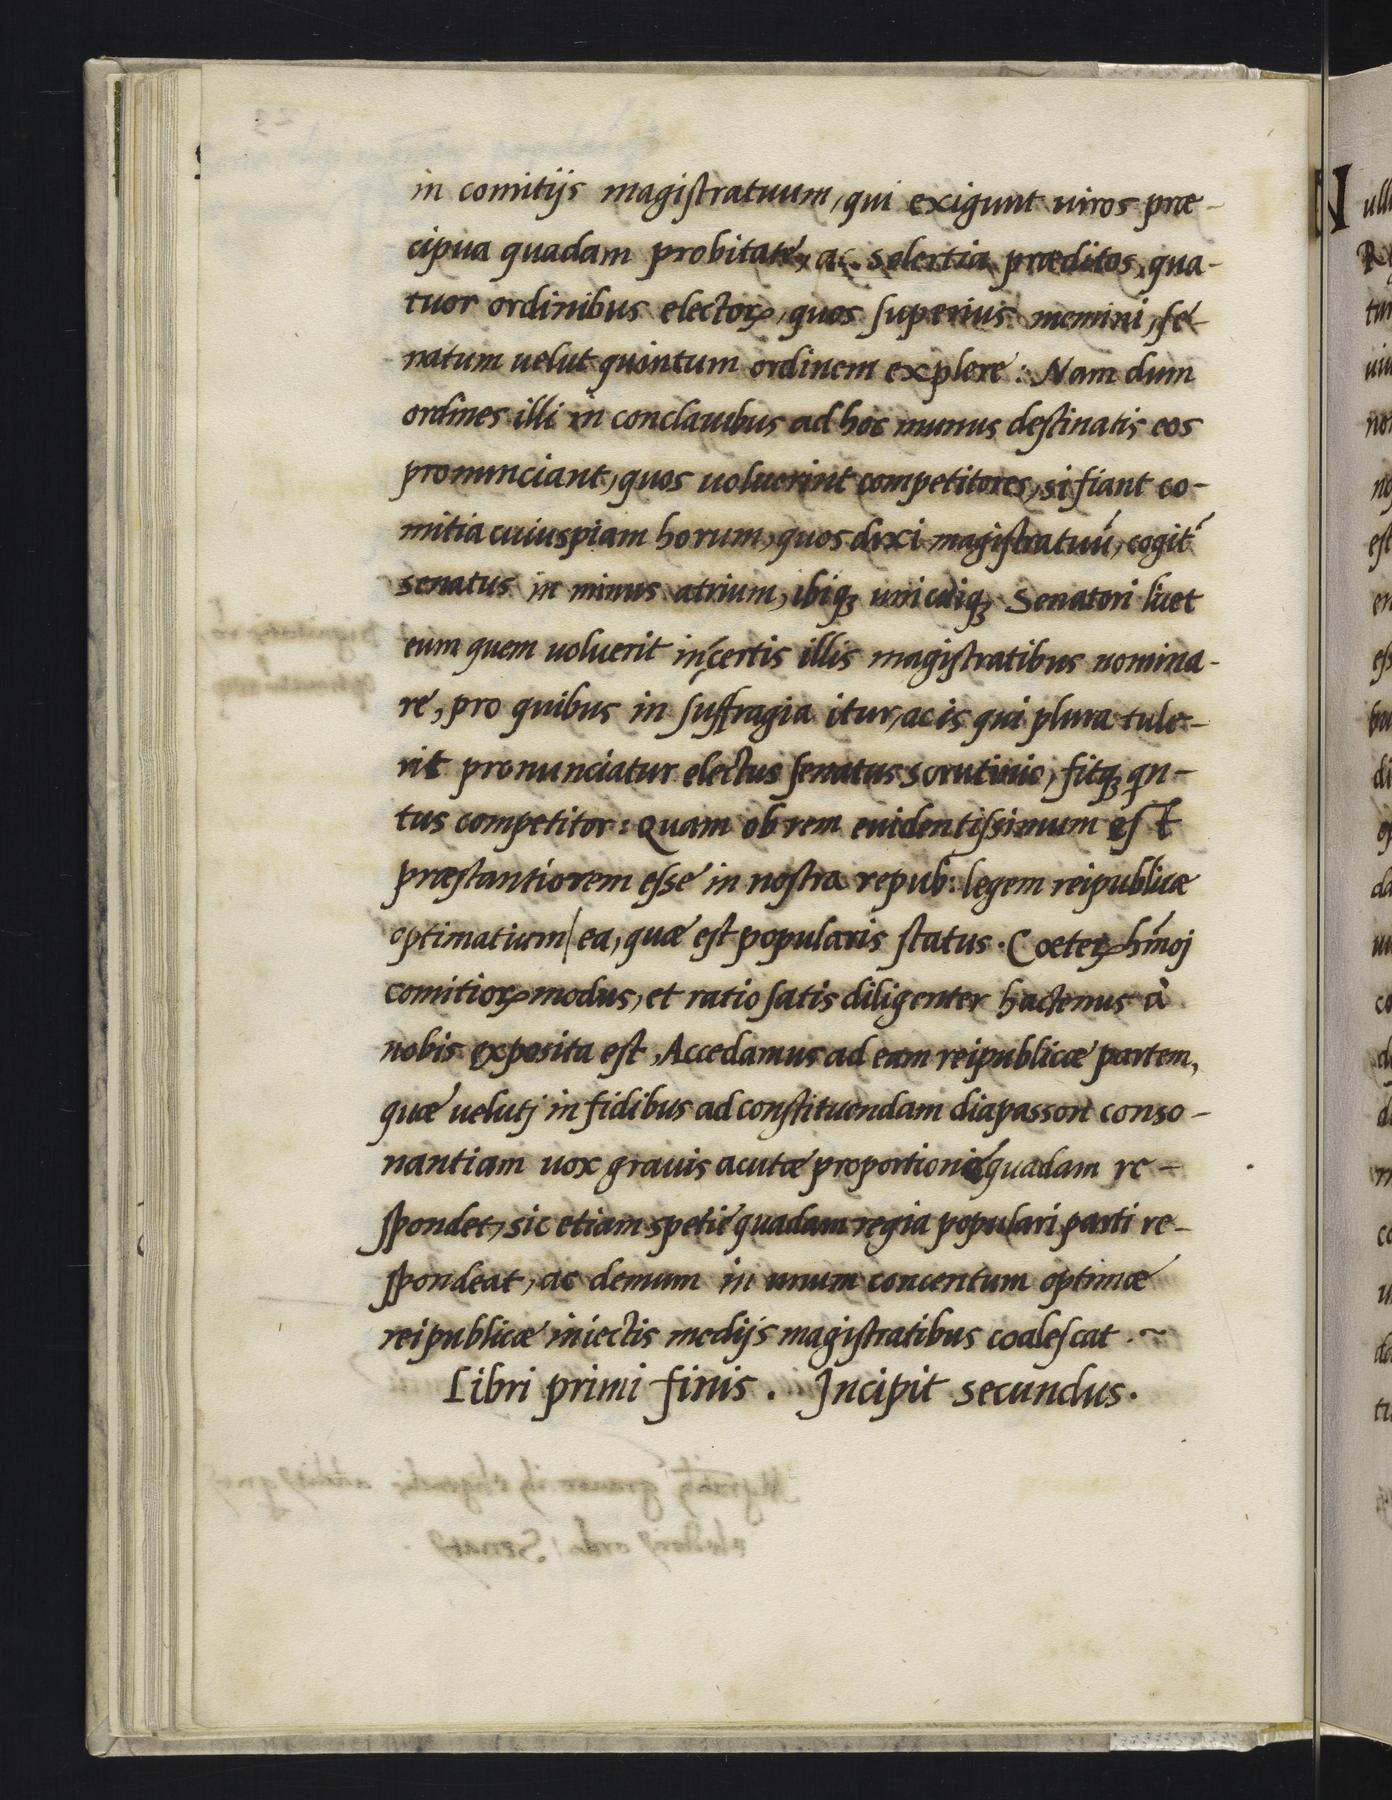 in comitijs magistratuum, qui exigunt uiros præ-
cipua quadam probitate, ac solertia præditos, qua-
tuor ordinibus electorꝝ, quos superius memini, se-
natum uelut quintum ordinem explere: Nam dum
ordines illi in conclauibus ad hoc munus destinatis eos
pronunciant, quos uoluerint competitores, si fiant co-
mitia cuiuspiam horum, quos dixi magistratuū, cogit̃
senatus in minus atrium, ibiqꝫ unicuiqꝫ Senatori licet
eum quem uoluerit in certis illis magistratibus nomina-
re, pro quibus in suffragia itur, ac is qui plura tule-
rit pronunciatur electus senatus scrutinio, fitqꝫ qn-
tus competitor: Quam ob rem euidentissimum est
præstantiorem esse in nostra repub: legem reipublicæ
optimatium / ea, quæ est popularis status. Coeterꝝ hm̃oj
comitiorꝝ modus, et ratio satis diligenter hactenus à
nobis exposita est, Accedamus ad eam reipublicæ partem,
quæ uelutj in fidibus ad constituendam diapasson conso-
nantiam uox grauis acutæ proportione quadam re-
spondet, sic etiam spetie quadam regia populari parti re-
spondeat, ac demum in unum concentum optimæ
reipublicæ iniectis medijs magistratibus coalescat . ~
Libri primi finis. Incipit secundus.